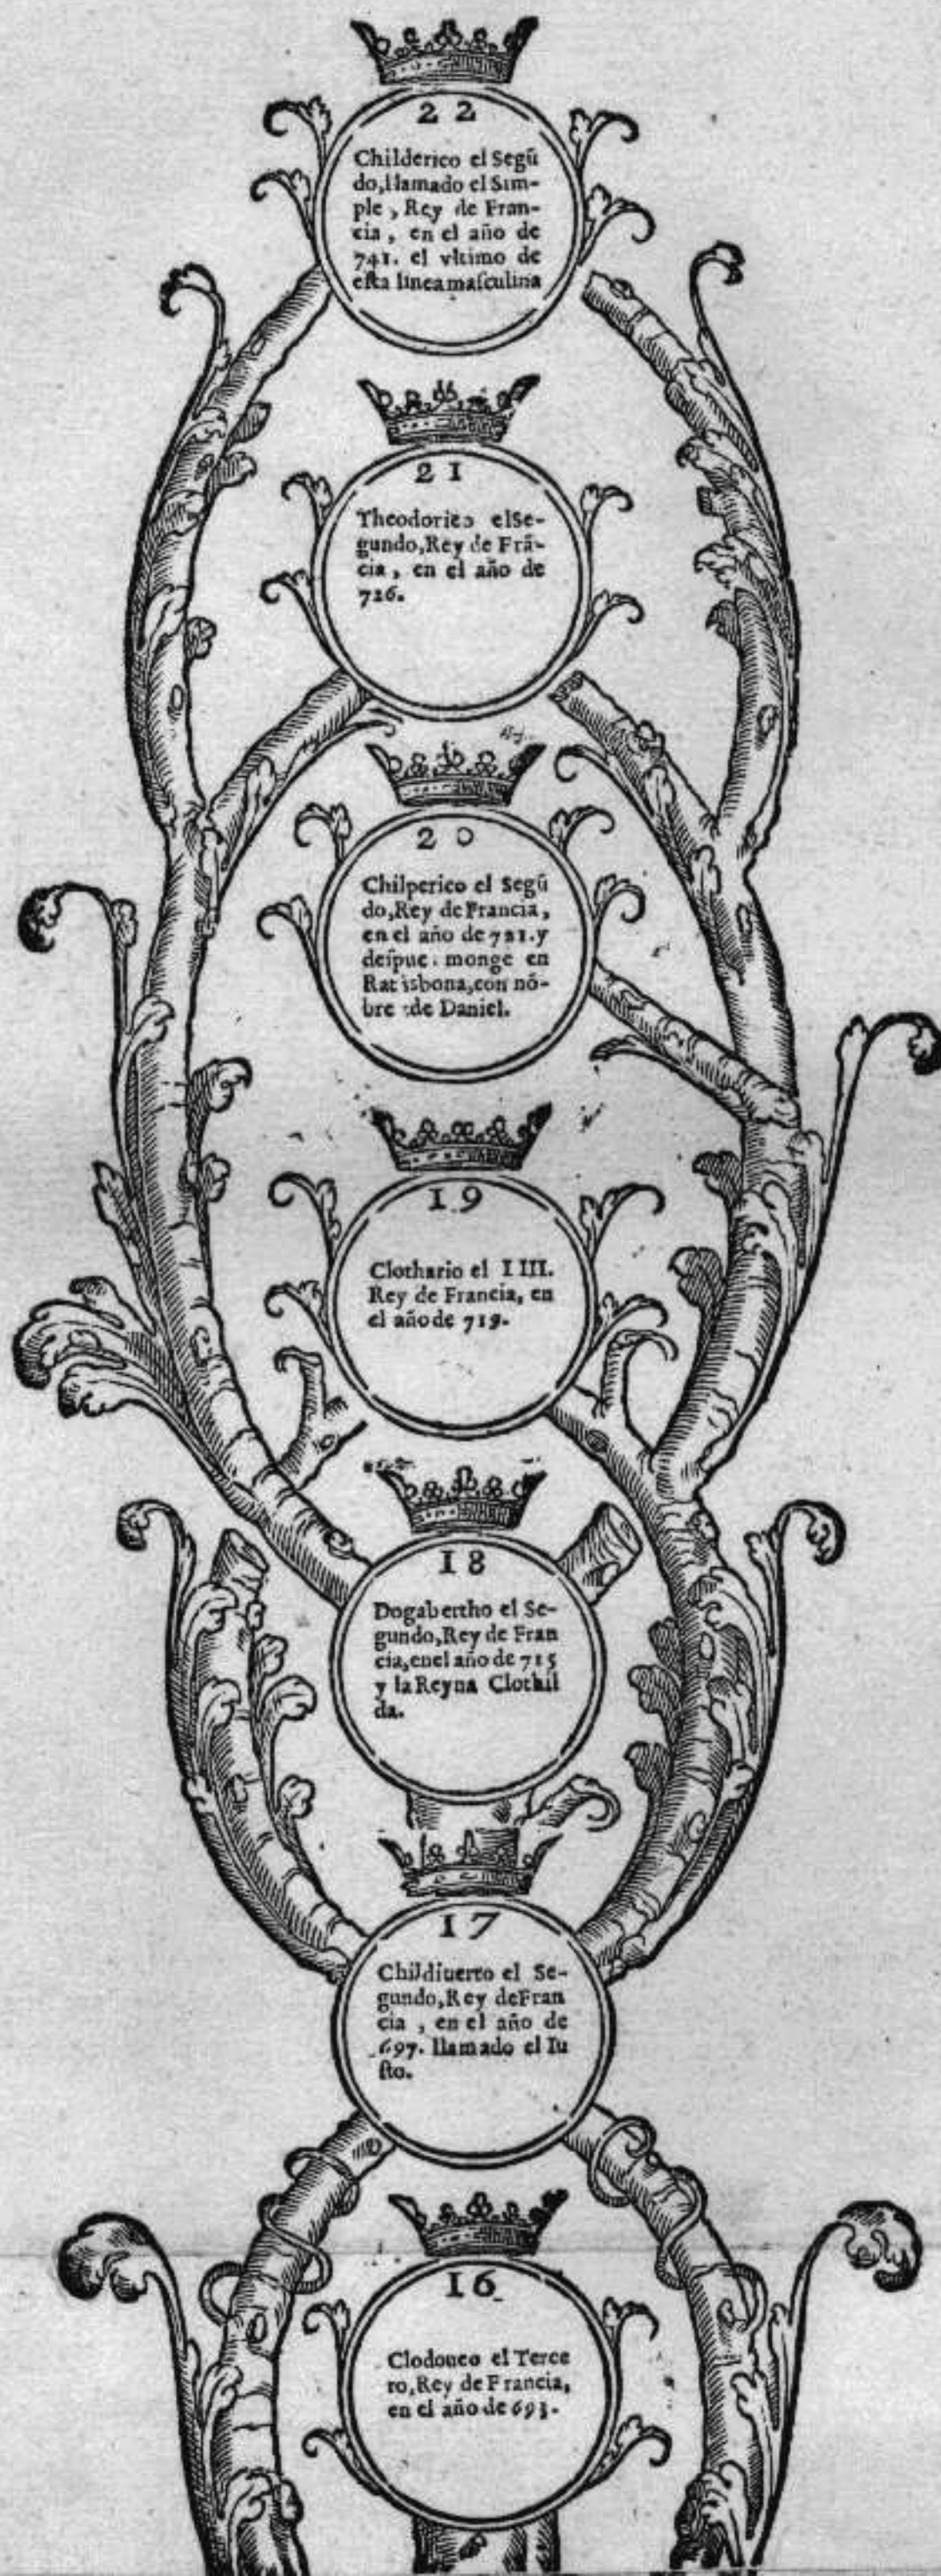 22
Childerico el Segũ
do, llamado el Sim-
ple, Rey de Fran-
cia, en el año de
741. el vltimo de
esta linea masculina
21
Theodorico el Se-
gundo, Rey de Frã-
cia, en el año de
726.
20
Chilperico el Segũ
do, Rey de Francia,
en el año de 721. y
despue. monge en
Ratisbona, con nõ-
bre de Daniel.
19
Clothario el IIII.
Rey de Francia, en
el año de 719.
18
Dogabertho el Se-
gundo, Rey de Fran
cia, en el año de 715
y la Reyna Clothil
da.
17
Childiuerto el Se-
gundo, Rey de Fran
cia, en el año de
697. llamado el Iu
sto.
16
Clodoueo el Terce
ro, Rey de Francia,
en el año de 693.